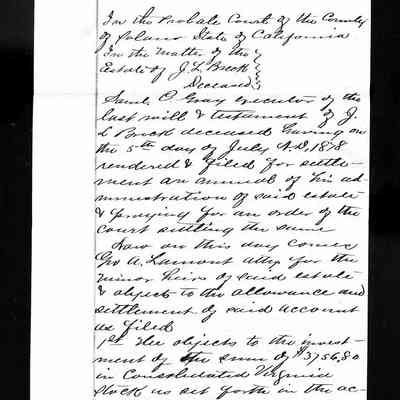 In the Probate Court of the County
of Solano State of California
In the matter of the
Estate of J. L. Breck
Deceased
Saml C Gray executor of the
last will & testament of J.
L Breck deceased having on
the 5th day of July A.D. 1878
rendered & filed for settle-
ment an annual of his ad-
ministration of said estate
& praying for an order of the
court settling the same
Now on this day comes
Geo A. Lamont atty for the
minor heirs of said estate
& objects to the allowance and
settlement of said account
as filed
1st He objects to the invest-
ment of the sum of $3756.80
in Consolidated Virginia
Stock as set forth in the ac-